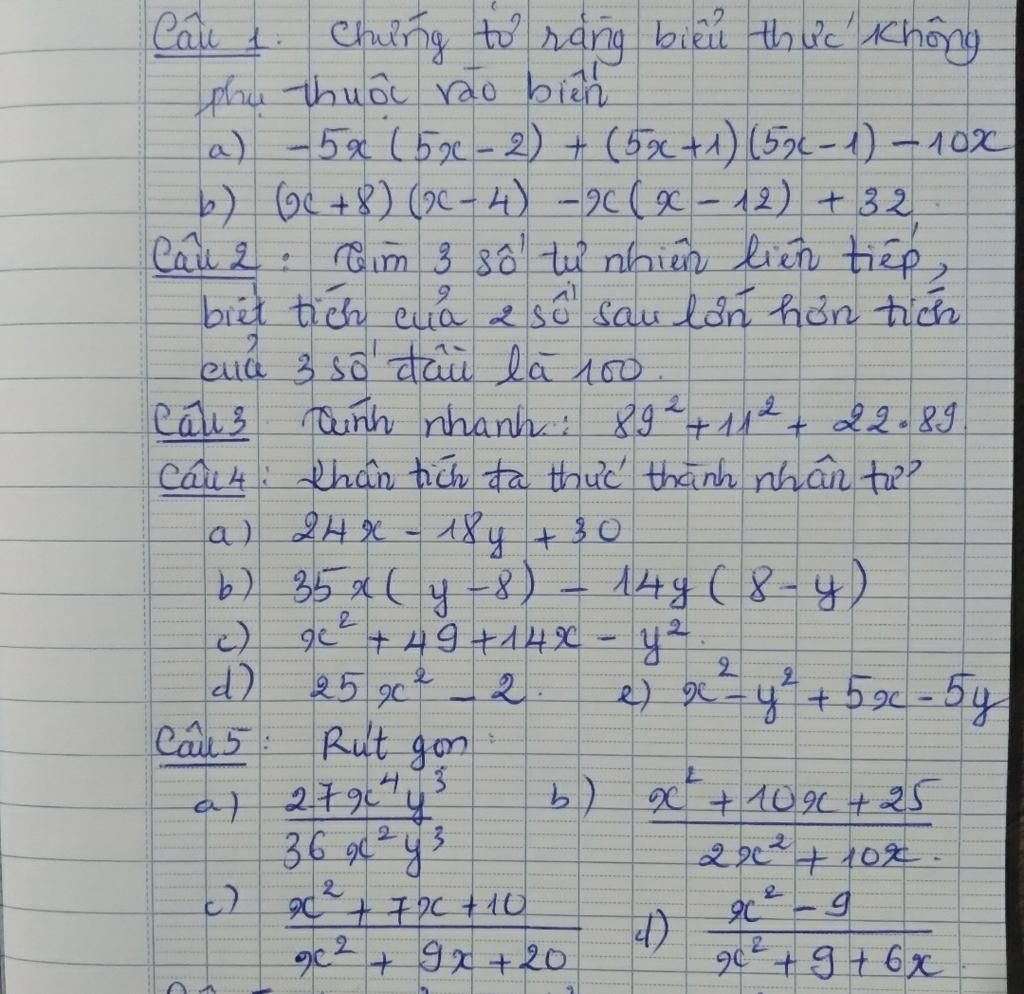 Câu 1. Chứng tỏ rằng biểu thức không
phụ thuộc vào biến
a) -5x (5x - 2) + (5x+1)(5x-1) - 10x
b) (x +8) (x - 4) -x( x - 12) + 32
Câu 2 : Tìm 3 số tự nhiên liên tiếp,
biết tích của 2 số sau lớn hơn tích
của 3 số đầu là 100.
Câu 3 Tính nhanh : 89² + 11² + 22.89
Câu 4 : Phân tích đa thức thành nhân tử
a) 24x - 18y + 30
b) 35x( y -8) - 14y ( 8 - y)
c) x² + 49 +14x - y².
d) 25x² - 2. e) x² - y² + 5x - 5y
Câu 5 : Rút gọn :
a) 27x⁴y³ / 36x²y³ b) x² + 10x + 25 / 2x² + 10x.
c) x² + 7x +10 / x² + 9x +20 d) x² - 9 / x² + 9 + 6x.